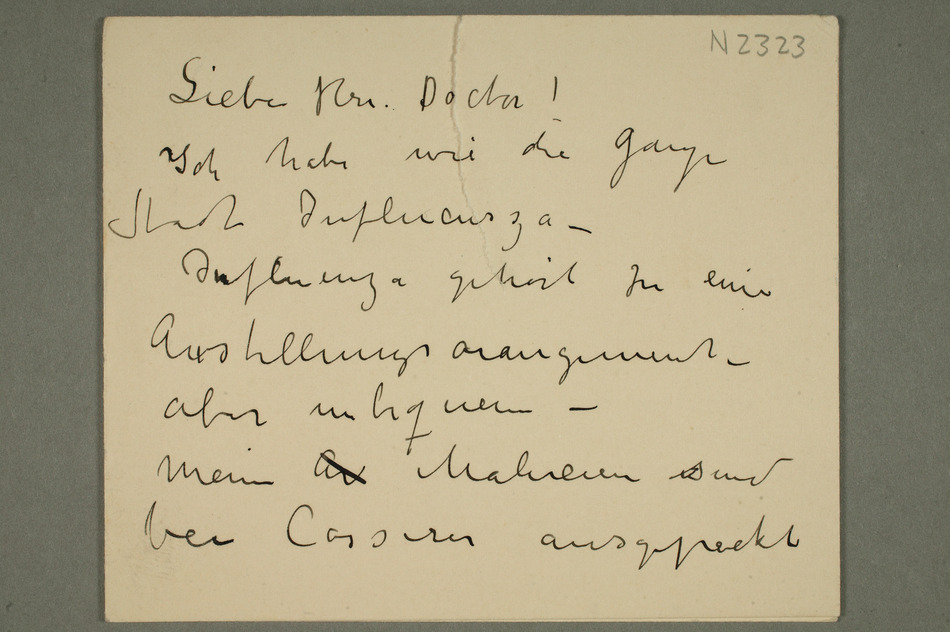 N 2323
Lieber Herr Doctor!
Ich habe wie die ganze
Stadt Influensza –
Influenza gehört zu eine
Austellungsarangement –
aber unbequem –
meine Malereien sind
bei Cassirer ausgepackt